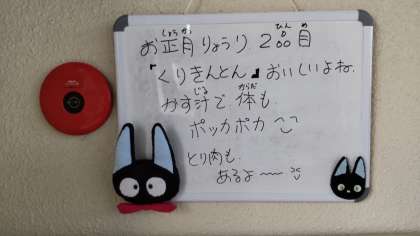 お正月りょうり 2品目
『くりきんとん』おいしいよね。
かす汁で、体も
ポッカポカ
とり肉も、
あるよ〜〜